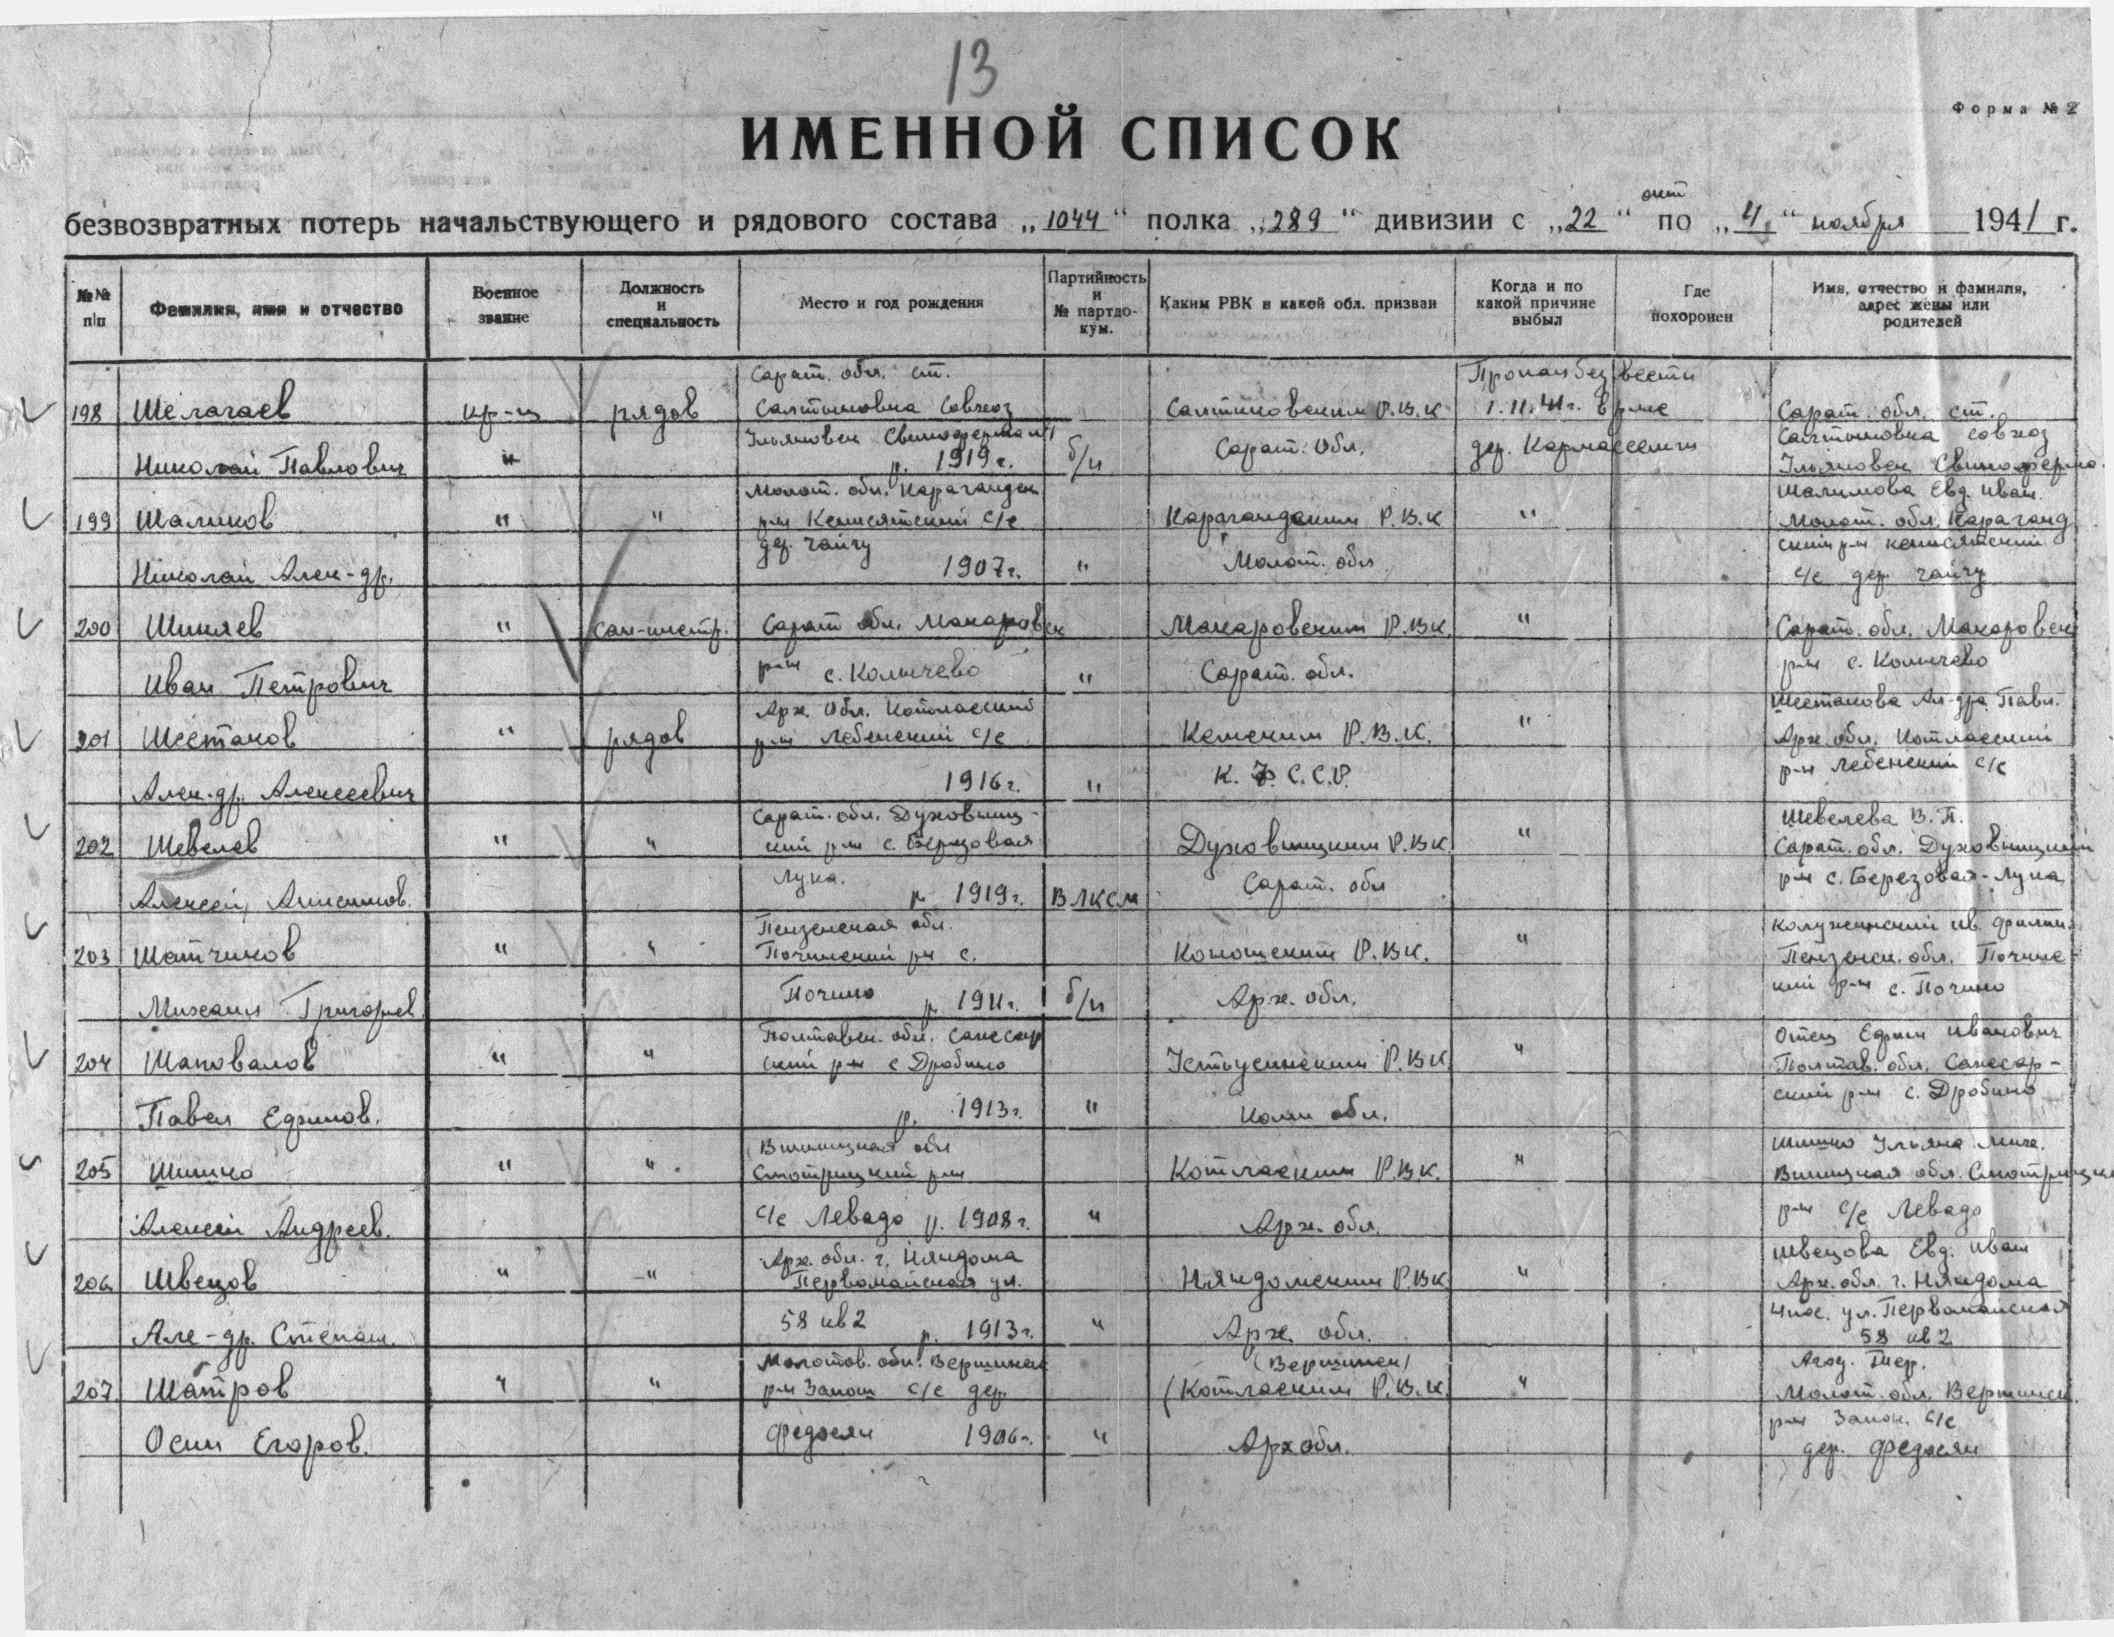 13
Форма № 2
ИМЕННОЙ СПИСОК
окт
безвозвратных потерь начальствующего и рядового состава „1044“ полка „289“ дивизии с „22“ по „4“ ноября 1941 г.
№№ п/п
Фамилия, имя и отчество
Военное звание
Должность и специальность
Место и год рождения
Партийность и № партдокум.
Каким РВК и какой обл. призван
Когда и по какой причине выбыл
Где похоронен
Имя, отчество и фамилия, адрес жены или родителей
Сарат. обл. ст. Пропал без вести
198 Шелагаев кр-ц рядов Салтыковка Совхоз Салтыковским Р.В.К 1.11.41г. в р-не Сарат. обл. ст.
Николай Павлович " Ильяновск Свиноферма р. 1919г. б/п Сарат. Обл. дер. Кармасельги Салтыковка совхоз
Ильяновск Свиноферма
Молот. обл. Карагандск Шалимова Евд. Иван.
199 Шаликов " " р-н с/с Карагандским Р.В.К " Молот. обл. Караганд
Николай Алек-др. дер. 1907г. " Молот. обл ским р-н
с/с дер.
200 Шиняев " сан-инстр. Сарат обл. Макаровск Макаровским Р.В.К. " Сарат. обл. Макаровск
Иван Петрович р-н с. Колычево " Сарат. обл. р-н с. Колычево
Арх. Обл. Котласский Шестакова Ал-дра Павл.
201 Шестаков " рядов р-н Лебенский с/с Кемским Р.В.К. " Арх. обл. Котласский
Алек-др. Алексеевич 1916г. " К. Ф. С.С.Р. р-н Лебенский с/с
Сарат. обл. Духовниц- Шевелева В.П.
202 Шевелев " " кий р-н с. Березовая Духовницким Р.В.К. " Сарат. обл. Духовницкий
Алексей Анисимов. Лука. р 1919г. ВЛКСМ Сарат. обл р-н с. Березовая-Лука
Пензенская обл.
203 Шатчиков " " Починский р-н с. Коношским Р.В.К. " Пензенск. обл. Починс-
Михаил Григорьев. Почино р 1911г. б/п Арх. обл. кий р-н с. Почино
Полтавск. обл. Отец Ефим Иванович
204 Шаповалов " " ский р-н с Дробино Р.В.К " Полтав. обл.
Павел Ефимов. р. 1913г. " Коми обл. ский р-н с. Дробино
Винницкая обл Шишко Ульяна Мих.
205 Шишко " " Смотрицкий р-н Котласким Р.В.К. " Винницкая обл. Смотрицкий
Алексей Андреев. с/с Левадо р. 1908г. " Арх. обл. р-н с/с Левадо
Арх. обл. г. Няндома Швецова Евд. Иван
206 Швецов " " Первомайская ул. Няндомским Р.В.К. " Арх. обл. г. Няндома
Але-др. Степан. 58 кв 2 р. 1913г. " Арх. обл. ул. Первомайская
58 кв 2
Молотов. обл. Верщинск (Верщинск)
207 Шатров " " р-н с/с дер. (Котласким Р.В.К. " Молот. обл. Верщинск
Осип Егоров. Федосяи 1906г. " Арх обл. р-н с/с
дер. Федосяи